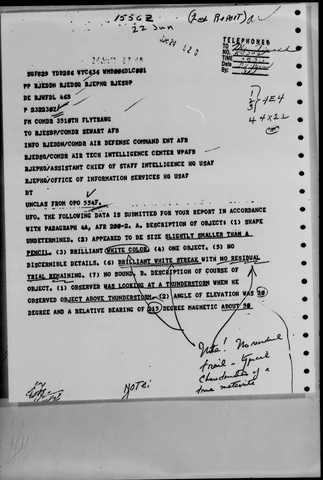 1556Z
(2nd REPORT)
22 Jun
TELEPHONED
TO
TIME
By:
1} 4E4
4 4X22
SGF829 YDB286 WYC436 WMB006DLC001
PP RJEDEN RJEDSQ RJEPHQ RJESBP
DE RJWFDL 46B
P 232230Z
FM COMDR 3310TH FLYTRAWG
TO RJESBP/COMDR SEWART AFB
INFO RJEDEN/COMDR AIR DEFENSE COMMAND ENT AFB
RJEDSQ/COMDR AIR TECH INTELLIGENCE CENTER WPAFB
RJEPHQ/ASSISTANT CHIEF OF STAFF INTELLIGENCE HQ USAF
RJEPHQ/OFFICE OF INFORMATION SERVICES HQ USAF
BT
UNCLAS FROM OPO 554F.
UFO. THE FOLLOWING DATA IS SUBMITTED FOR YOUR REPORT IN ACCORDANCE
WITH PARAGRAPH 4A, AFR 200-2. A. DESCRIPTION OF OBJECT: (1) SHAPE
UNDETERMINED, (2) APPEARED TO BE SIZE SLIGHTLY SMALLER THAN A
PENCIL. (3) BRILLIANT WHITE COLOR. (4) ONE OBJECT. (5) NO
DISCERNIBLE DETAILS. (6) BRILLIANT WHITE STREAK WITH NO RESIDUAL
TRIAL REMAINING. (7) NO SOUND. B. DESCRIPTION OF COURSE OF
OBJECT. (1) OBSERVER WAS LOOKING AT A THUNDERSTORM WHEN HE
OBSERVED OBJECT ABOVE THUNDERSTORM. (2) ANGLE OF ELEVATION WAS 30
DEGREE AND A RELATIVE BEARING OF 215 DEGREE MAGNETIC ABOUT 30
Note! No residual
trail - typical
characteristic of a
true meteorite
NOTE: